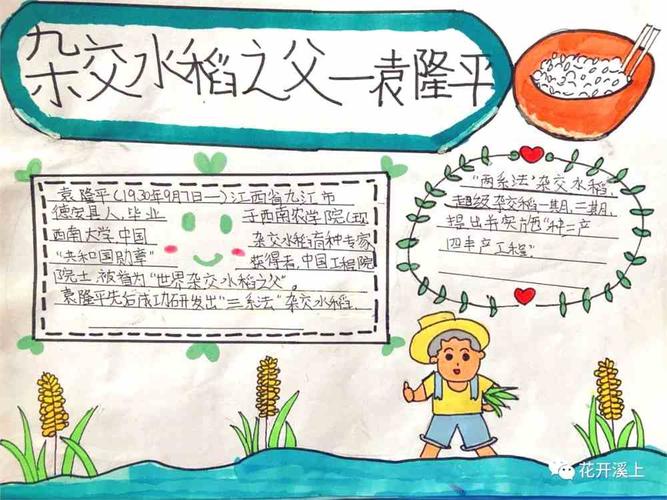 杂交水稻之父—袁隆平
袁隆平(1930年9月7日—)江西省九江市
德安县人,毕业 于西南农学院(现
西南大学,中国 杂交水稻育种专家
"共和国勋章" 获得者,中国工程院
院士,被誉为"世界杂交水稻之父"。
袁隆平先后成功研发出"三系法"杂交水稻、
"两系法"杂交水稻、
超级杂交稻一期、二期,
提出并实施"种三产
四丰产工程"。
花开溪上